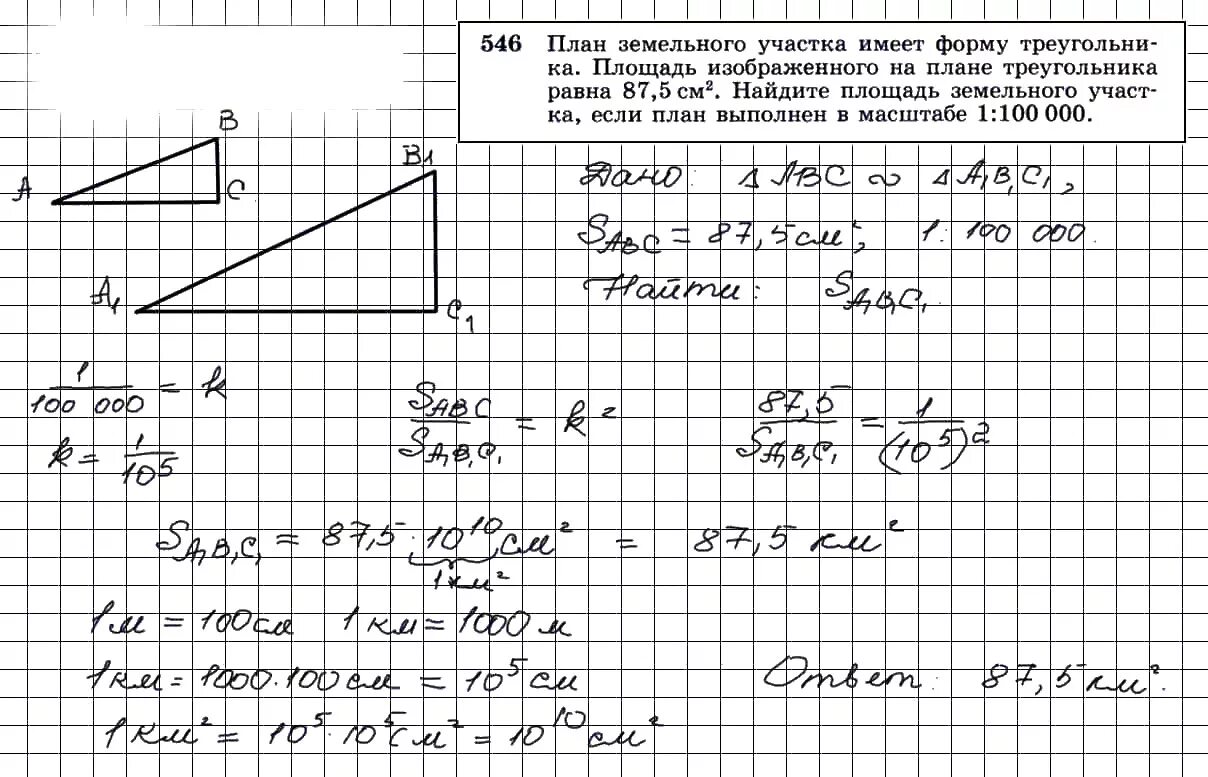 546 План земельного участка имеет форму треугольни-
ка. Площадь изображенного на плане треугольника
равна 87,5 см². Найдите площадь земельного участ-
ка, если план выполнен в масштабе 1:100 000.
B
A
C
B1
A₁
C₁
Дано: Δ ABC ∾ Δ A₁B₁C₁,
S_ABC = 87,5 см², 1: 100 000.
Найти: S_A₁B₁C₁.
1/100 000 = k
S_ABC/S_A₁B₁C₁ = k²
87,5/S_A₁B₁C₁ = 1/(10⁵)²
k = 1/10⁵
S_A₁B₁C₁ = 87,5 · 10¹⁰ см² = 87,5 км²
1 км²
1м = 100см 1 км = 1000 м
1км = 1000·100 см = 10⁵ см
Ответ: 87,5 км².
1 км² = 10⁵ · 10⁵ см² = 10¹⁰ см²